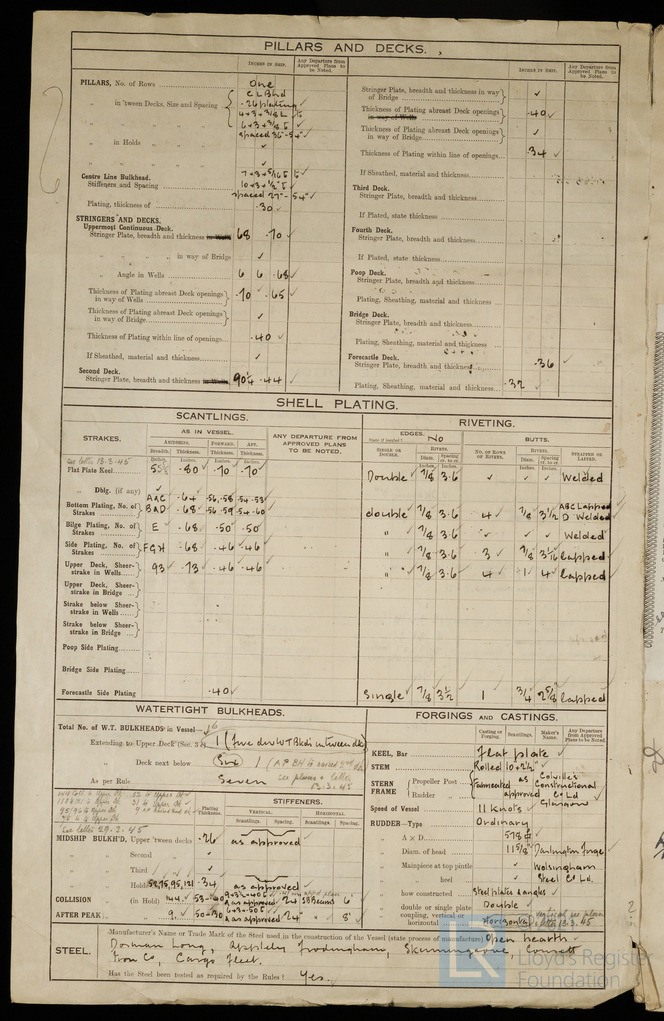 PILLARS AND DECKS.
INCHES IN SHIP.
Any Departure from Approved Plans to be Noted.
PILLARS, No. of Rows
One
C L Bhd
„ in 'tween Decks, Size and Spacing
·26 plating
6+3+3/8
spaced 36"-54"
„ in Holds
Centre Line Bulkhead.
Stiffeners and Spacing
10+3+1/2"
spaced 27"-54"
Plating, thickness of
·30
STRINGERS AND DECKS.
Uppermost Continuous Deck.
Stringer Plate, breadth and thickness in Wells
68 ·70
„ „ „ „ in way of Bridge
„ Angle in Wells
6 6 ·68
Thickness of Plating abreast Deck openings in way of Wells
·70 ·65
Thickness of Plating abreast Deck openings in way of Bridge
Thickness of Plating within line of openings
·40
If Sheathed, material and thickness
Second Deck.
Stringer Plate, breadth and thickness in Wells
90¼ ·44
INCHES IN SHIP.
Any Departure from Approved Plans to be Noted.
Stringer Plate, breadth and thickness in way of Bridge
Thickness of Plating abreast Deck openings in way of Wells
·40
Thickness of Plating abreast Deck openings in way of Bridge
Thickness of Plating within line of openings
·34
If Sheathed, material and thickness
Third Deck.
Stringer Plate, breadth and thickness
If Plated, state thickness
Fourth Deck.
Stringer Plate, breadth and thickness
If Plated, state thickness
Poop Deck.
Stringer Plate, breadth and thickness
Plating, Sheathing, material and thickness
Bridge Deck.
Stringer Plate, breadth and thickness
Plating, Sheathing, material and thickness
Forecastle Deck.
Stringer Plate, breadth and thickness
·36
Plating, Sheathing, material and thickness
·32
SHELL PLATING.
SCANTLINGS.
RIVETING.
STRAKES.
AS IN VESSEL.
AMIDSHIPS.
FORWARD.
AFT.
Breadth. Thickness. Thickness. Thickness.
ANY DEPARTURE FROM APPROVED PLANS TO BE NOTED.
EDGES.
No
SINGLE OR DOUBLE.
RIVETS.
Diam. Spacing cr. to cr.
BUTTS.
NO. OF ROWS OF RIVETS.
RIVETS.
Diam. Spacing cr. to cr.
STRAPPED OR LAPPED.
see letter 13·3·45
Flat Plate Keel
·80 ·70 ·70
Double 7/8 3·6 Welded
„ Dblg. (if any)
Bottom Plating, No. of Strakes
A&C ·64 ·56,·58 ·54-·53
B&D ·68 ·56-·59 ·54-·60
double 7/8 3·6 4 7/8 3½ ABC Lapped D Welded
Bilge Plating, No. of Strakes
E ·68 ·50 ·50
" 7/8 3·6 Welded
Side Plating, No. of Strakes
FGH ·68 ·46 ·46
" 7/8 3·6 3 7/8 lapped
Upper Deck, Sheerstrake in Wells
93 ·73 ·46 ·46
" 7/8 3·6 4 4 lapped
Upper Deck, Sheerstrake in Bridge
Strake below Sheerstrake in Wells
Strake below Sheerstrake in Bridge
Poop Side Plating
Bridge Side Plating
Forecastle Side Plating
·40
Single 7/8 3½ 1 3/4 2⅝ lapped
WATERTIGHT BULKHEADS.
Total No. of W.T. BULKHEADS in Vessel
6
Extending to Upper Deck
1 (five dr WTBkds in tween dk)
„ Deck next below
As per Rule
Seven
see plans & letter 13·3·45
See letter 29·3·45
Plating Thickness.
STIFFENERS.
VERTICAL.
HORIZONTAL.
Scantlings. Spacing. Scantlings. Spacing.
MIDSHIP BULK'D, Upper 'tween decks
·26
as approved
„ Second „
„ Third „
„ Holds
52,75,95,121 ·34
as approved
COLLISION „ (in Hold)
144
as approved 24
AFTER PEAK „ „
9
as approved 24" 8'
FORGINGS AND CASTINGS.
Casting or Forging. Scantlings. Maker's Name. Any Departure from Approved Plans to be Noted.
KEEL, Bar
flat plate
STEM
Rolled 10 × 2½"
STERN FRAME
Propeller Post
Rudder „
Fabricated as approved
Colvilles Constructional Co Ld Glasgow
Speed of Vessel
11 Knots
RUDDER—Type
Ordinary
„ A × D
578
„ Diam. of head
11⅝" Darlington Forge
„ Mainpiece at top pintle
„ „ heel
Wolsingham Steel Co Ld.
„ how constructed
Steel plates & angles
„ double or single plate
Double
„ coupling, vertical or horizontal
Horizontal
vertical see plan & letter 13·3·45
STEEL.
Manufacturer's Name or Trade Mark of the Steel used in the construction of the Vessel (state process of manufacture)
Open hearth.
Dorman Long, Appleby Frodingham, Skinningrove, Consett
Iron Co, Cargo Fleet.
Has the Steel been tested as required by the Rules?
Yes.
LR
Lloyd's Register
Foundation